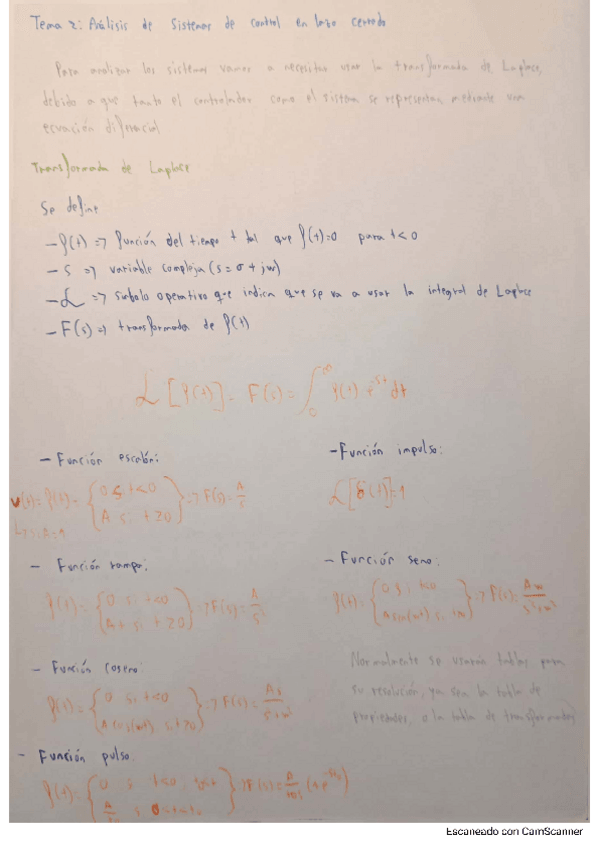 Tema 2: Análisis de Sistemas de control en lazo cerrado
Para analizar los sistemas vamos a necesitar usar la transformada de Laplace,
debido a que tanto el controlador como el sistema se representan mediante una
ecuación diferencial
Transformada de Laplace
Se define
- f(t) => función del tiempo t tal que f(t)=0 para t<0
- s => variable compleja (s = σ + jw)
- ℒ => símbolo operativo que indica que se va a usar la integral de Laplace
- F(s) => transformada de f(t)
ℒ [f(t)] = F(s) = ∫₀^∞ f(t) e^-st dt
- Función escalón:
u(t) = f(t) = { 0 si t<0
A si t≥0 } => F(s) = A/s
si A=1
- Función impulso:
ℒ[δ(t)]=1
- Función rampa:
f(t) = { 0 si t<0
At si t≥0 } => F(s) = A/s²
- Función seno:
f(t) = { 0 si t<0
A sin(wt) si t≥0 } => F(s) = Aw/s²+w²
- Función coseno:
f(t) = { 0 si t<0
A cos(wt) si t≥0 } => F(s) = As/s²+w²
Normalmente se usarán tablas para
su resolución, ya sea la tabla de
propiedades, o la tabla de transformadas
- Función pulso:
f(t) = { 0 si t<0
Escaneado con CamScanner